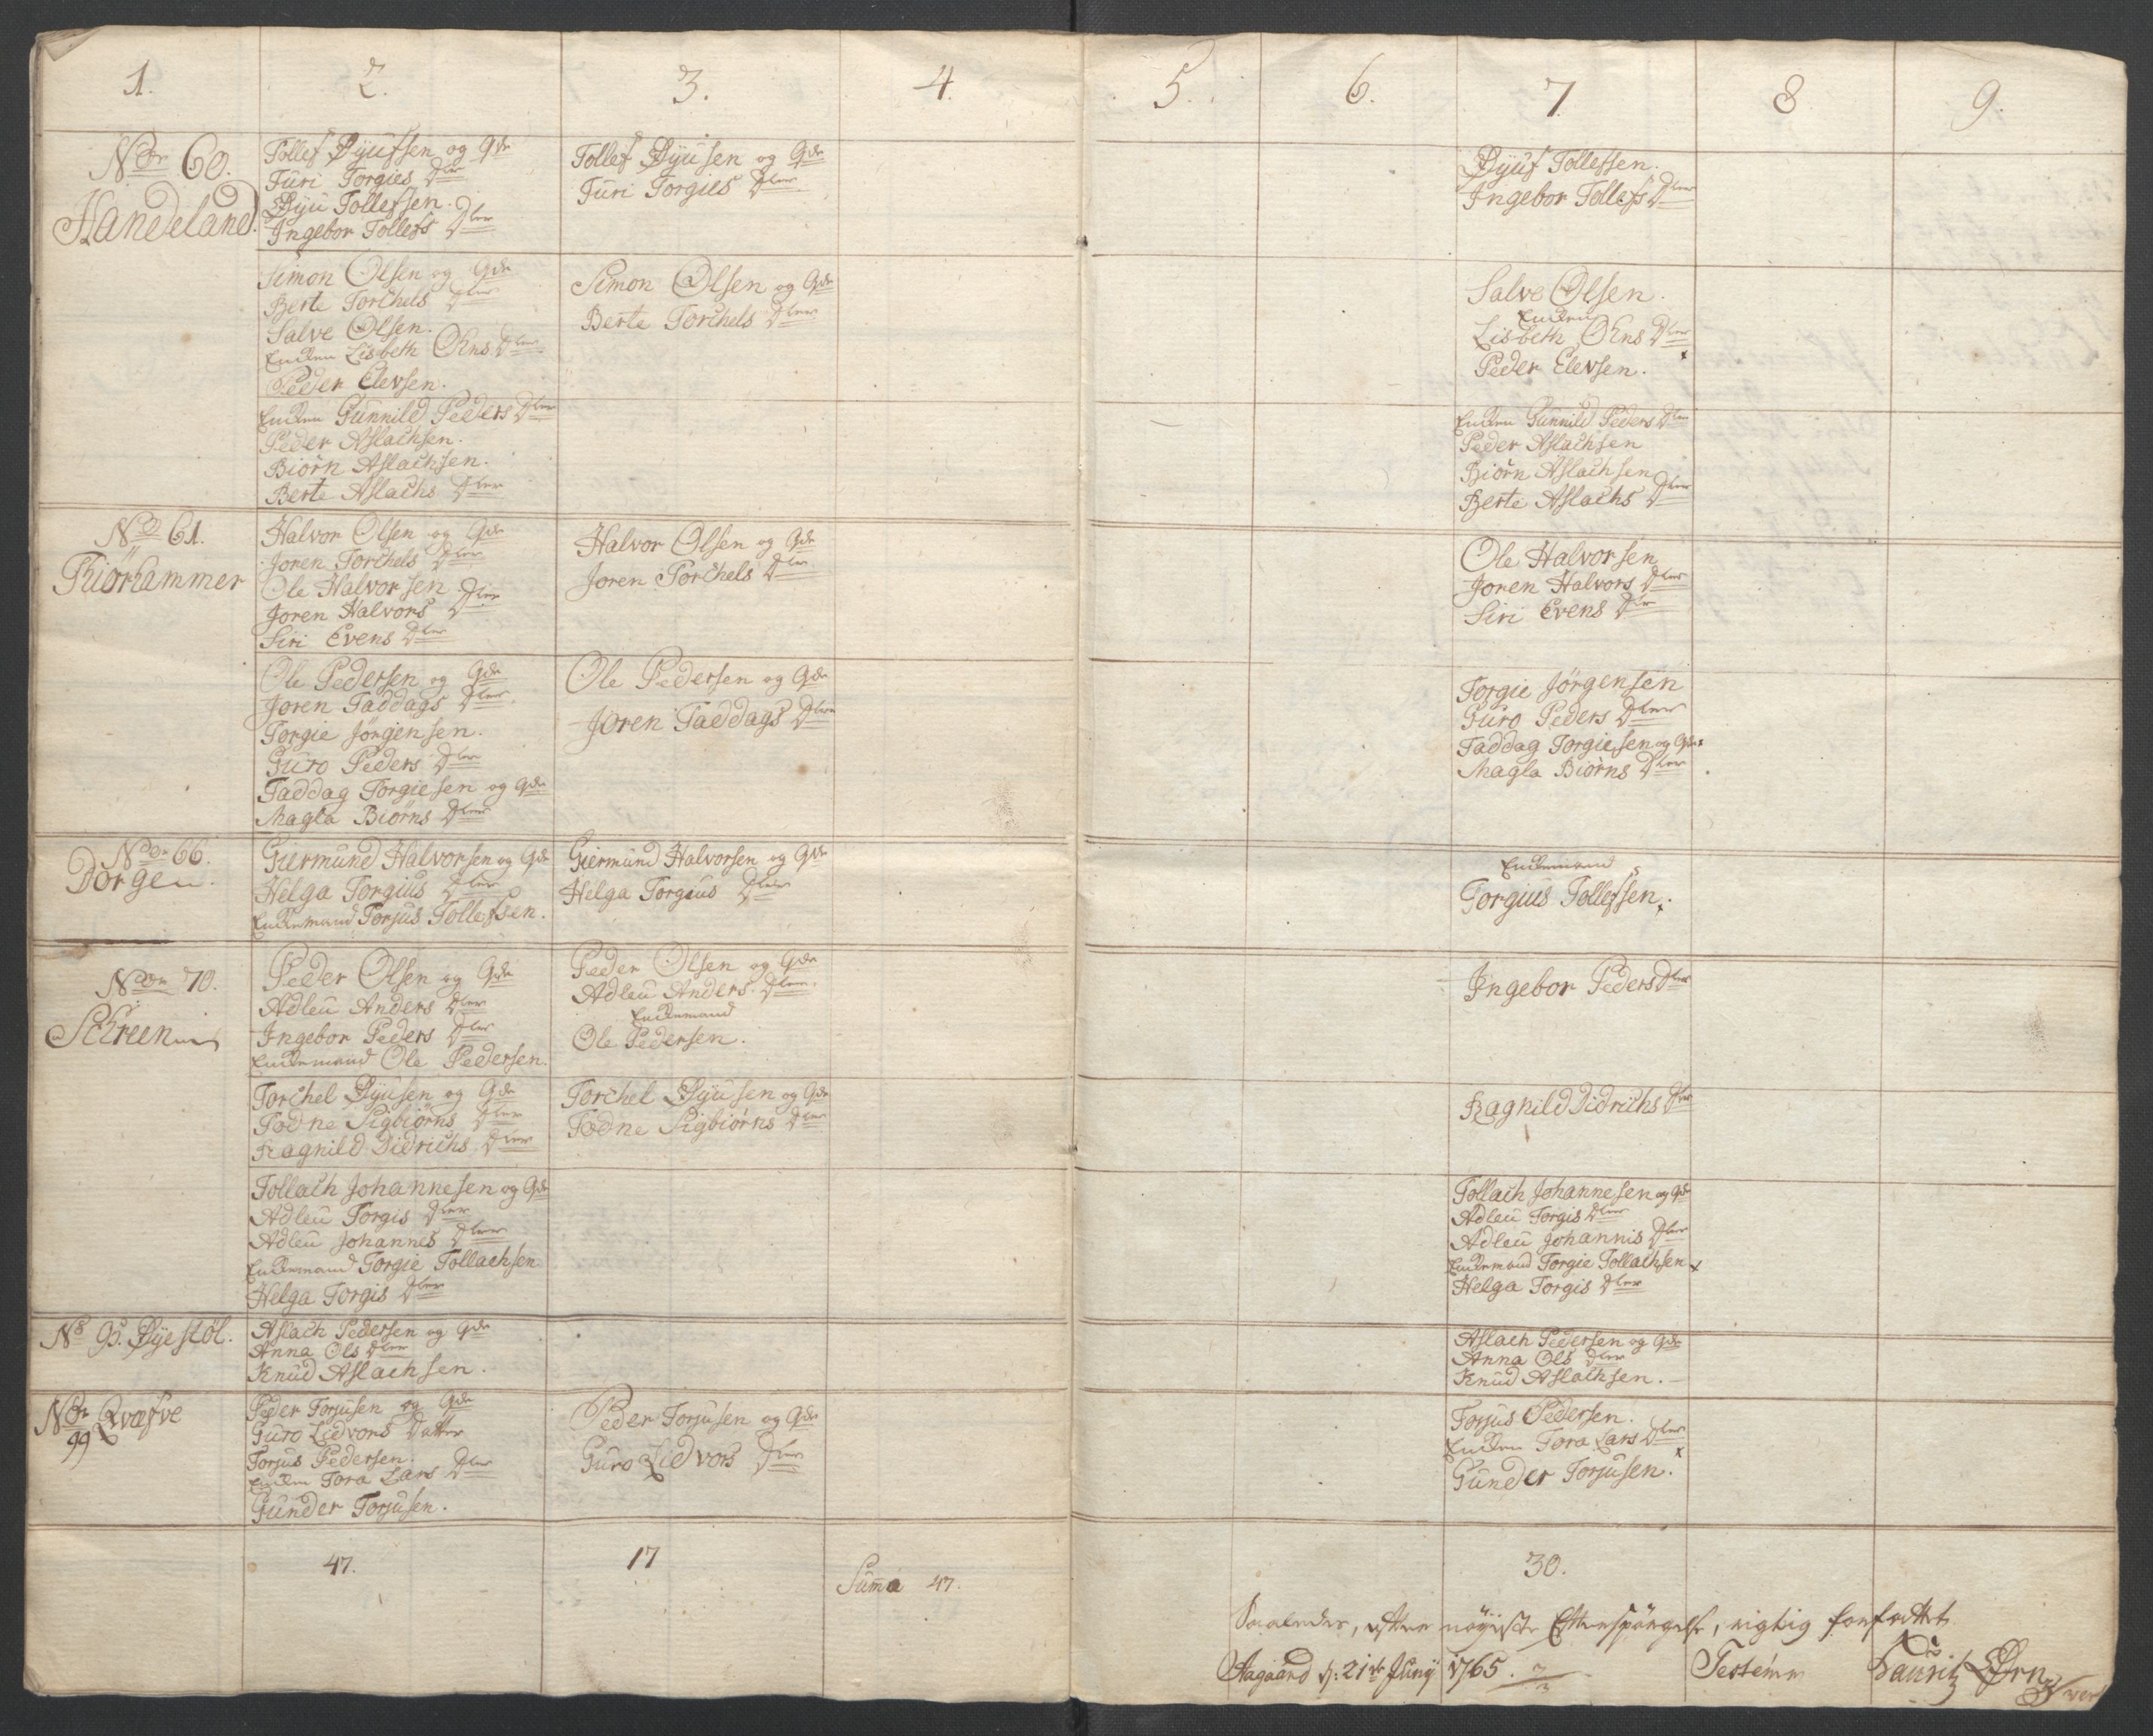 1. 2. 3. 4. 5. 6. 7. 8. 9.
Nor 60.
Handeland.
Tollef Øyufsen og Qde
Turi Torgies Dter
Øyu Tollefsen.
Ingebor Tollefs Dter
Tollef Øyusen og Qde
Turi Torgies Dter
Øyuf Tollefsen.
Ingebor Tollefs Dter
Simon Olsen og Qde
Berte Torchels Dter
Salve Olsen.
Encken Lisbeth Ohns Dter
Peder Elevsen.
Simon Olsen og Qde
Berte Torchels Dter
Salve Olsen.
Encken
Lisbeth Ohns Dter
Peder Elevsen.
Encken Gunnild Peders Dter
Peder Aslachsen.
Biörn Aslachsen.
Berte Aslachs Dter
Encken Gunnild Peders Dter
Peder Aslachsen
Biörn Aslachsen
Berte Aslachs Dter
No 61.
Thiörhammer
Halvor Olsen og Qde
Joren Torchels Dter
Ole Halvorsen
Joren Halvors Dter
Siri Evens Dter
Halvor Olsen og Qde
Joren Torchels Dter
Ole Halvorsen
Joren Halvors Dter
Siri Evens Dtr
Ole Pedersen og Qde
Joren Taddags Dter
Torgie Jörgensen.
Guro Peders Dter
Taddag Torgiesen og Qde
Magla Biörns Dter
Ole Pedersen og Qde
Joren Taddags Dter
Torgie Jörgensen
Guro Peders Dter
Taddag Torgiesen og Qde
Magla Biörns Dter
Nor 66.
Dorgen.
Giermund Halvorsen og Qde
Helga Torgius Dter
Enckemand Torjus Tollefsen.
Giermund Halvorsen og Qde
Helga Torgius Dter
Enckemand
Torgius Tollefsen.
Nor 70.
Schreen
Peder Olsen og Qde
Adleu Anders Dter
Ingebor Peders Dter
Enckemand Ole Pedersen.
Peder Olsen og Qde
Adleu Anders Dter.
Enckemand
Ole Pedersen.
Ingebor Peders Dter
Torchel Øyusen og Qde
Todne Sigbiörns Dter
Ragnild Didrichs Dter
Torchel Øyusen og Qde
Todne Sigbiörns Dter
Ragnild Didrichs Dter
Tollach Johannesen og Qde
Adleu Torgis Dter
Adleu Johannes Dter
Enckemand Torgie Tollachsen
Helga Torgis Dter
Tollach Johannesen og Qde
Adleu Torgis Dter
Adleu Johannis Dter
Enckemand Torgie Tollachsen
Helga Torgis Dter
No 95. Øyestöl.
Aslach Pedersen og Qde
Anna Ols Dter
Knud Aslachsen.
Aslach Pedersen og Qde
Anna Ols Dter
Knud Aslachsen.
Nor Qvæfve
99
Peder Torjusen og Qde
Guro Lidvors Datter
Torjus Pedersen.
Encken Tora Lars Dter
Gunder Torjusen.
Peder Torjusen og Qde
Guro Lidvors Dter
Torjus Pedersen.
Encken Tora Lars Dter
Gunder Torjusen.
47. 17 30.
Suma 47.
Saaledes, efter nöyeste Efterspörgelse, rigtig forfattet
Aagaard d: 21de Junij 1765.
Testerer Lauritz Ørn